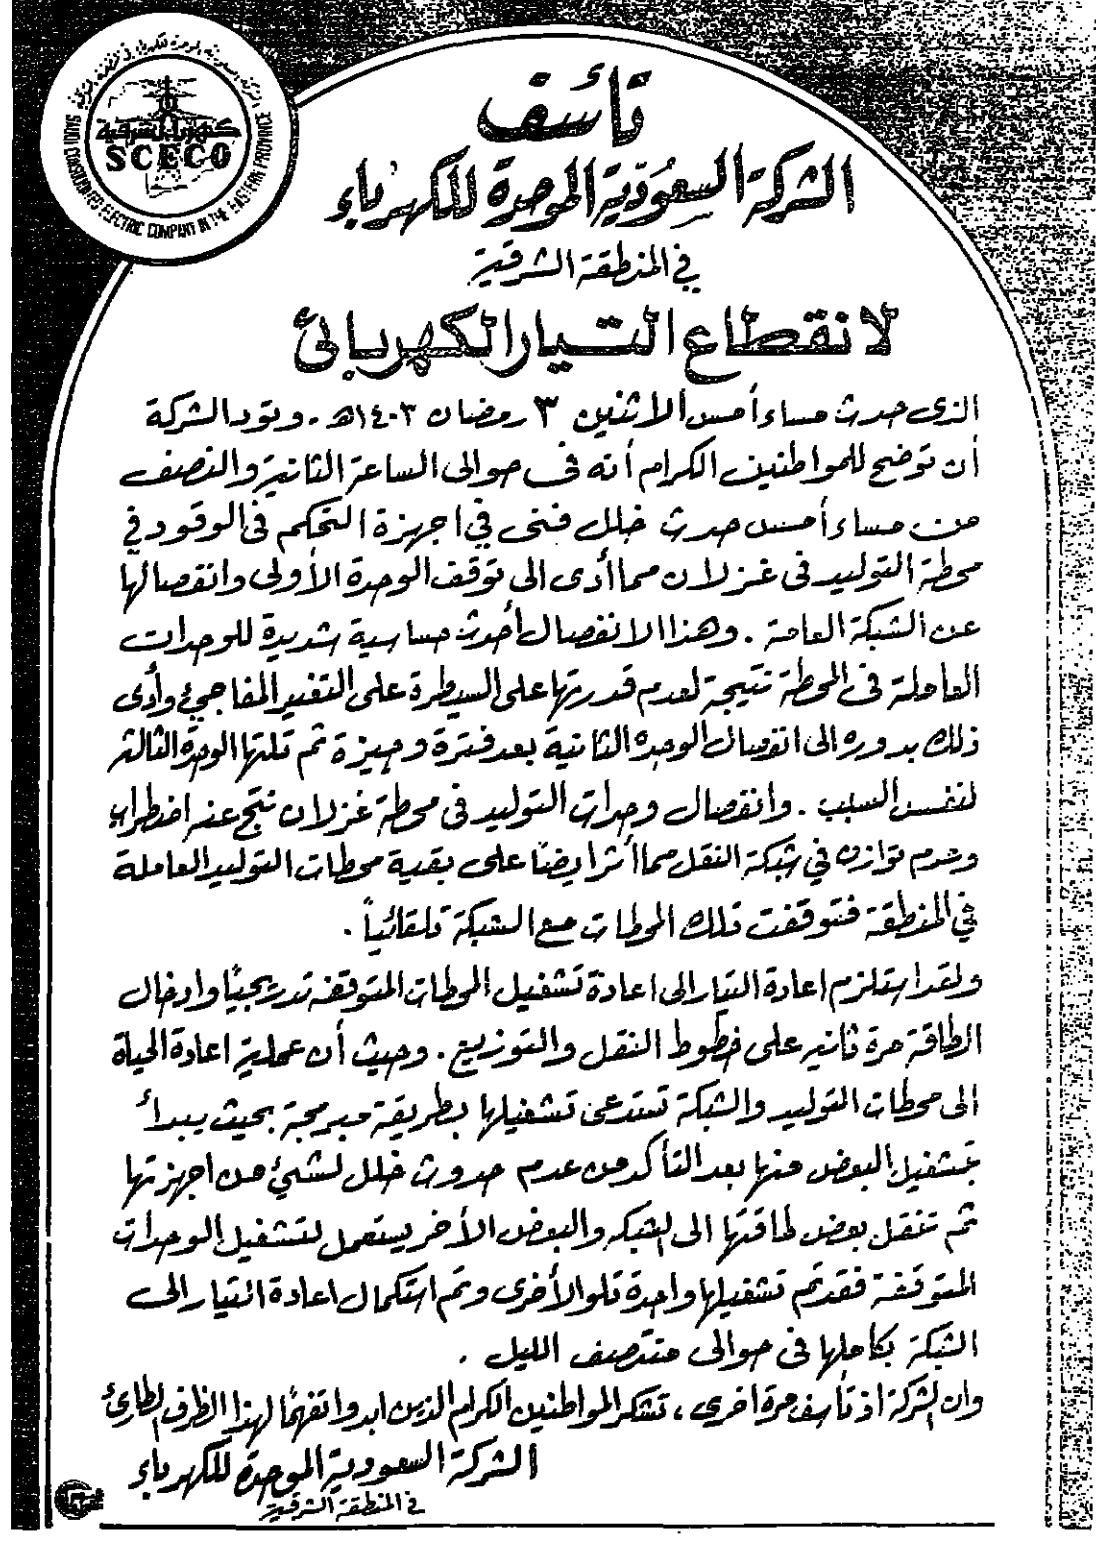 كهرباء الشرقية
SCECO
SAUDI CONSOLIDATED ELECTRIC COMPANY IN THE EASTERN PROVINCE
تأسف
الشركة السعودية الموحدة للكهرباء
في المنطقة الشرقية
لانقطاع التيار الكهربائي
الذى حدث مساء أمس الاثنين ٣ رمضان ١٤٠٣هـ . وتود الشركة
أن توضح للمواطنين الكرام أنه فى حوالى الساعة الثانية والنصف
من مساء أمس حدث خلل فنى في اجهزة التحكم فى الوقود في
محطة التوليد فى غزلان مما أدى الى توقف الوحدة الأولى وانفصالها
عن الشبكة العامة . وهذا الانفصال أحدث حساسية شديدة للوحدات
العاملة فى المحطة نتيجة لعدم قدرتها على السيطرة على التغير المفاجئ وأدى
ذلك بدوره الى انفصال الوحده الثانية بعد فترة وجيزة ثم تلتها الوحدة الثالثة
لنفس السبب . وانفصال وحدات التوليد فى محطة غزلان نتج عنه اضطراب
وعدم توازن في شبكة النقل مما أثر ايضاً على بقية محطات التوليد العاملة
في المنطقة فتوقفت تلك المحطات مع الشبكة تلقائياً .
ولقد استلزم اعادة التيار الى اعادة تشغيل المحطات المتوقفه تدريجياً وادخال
الطاقة مرة ثانيه على خطوط النقل والتوزيع . وحيث أن عملية اعادة الحياة
الى محطات التوليد والشبكة تستدعى تشغيلها بطريقة مبرمجة بحيث يبدأ
بتشغيل البعض منها بعد التأكد من عدم حدوث خلل لشئ من اجهزتها
ثم تنقل بعض طاقتها الى الشبكه والبعض الأخر يستعمل لتشغيل الوحدات
المتوقفة فقد تم تشغيلها واحدة تلو الأخرى وتم استكمال اعادة التيار الى
الشبكة بكاملها فى حوالى منتصف الليل .
وان الشركة اذ تأسف مرة اخرى ، تشكر المواطنين الكرام الذين ابدوا تفهماً لهذا الظرف الطارئ
الشركة السعودية الموحدة للكهرباء
في المنطقة الشرقية